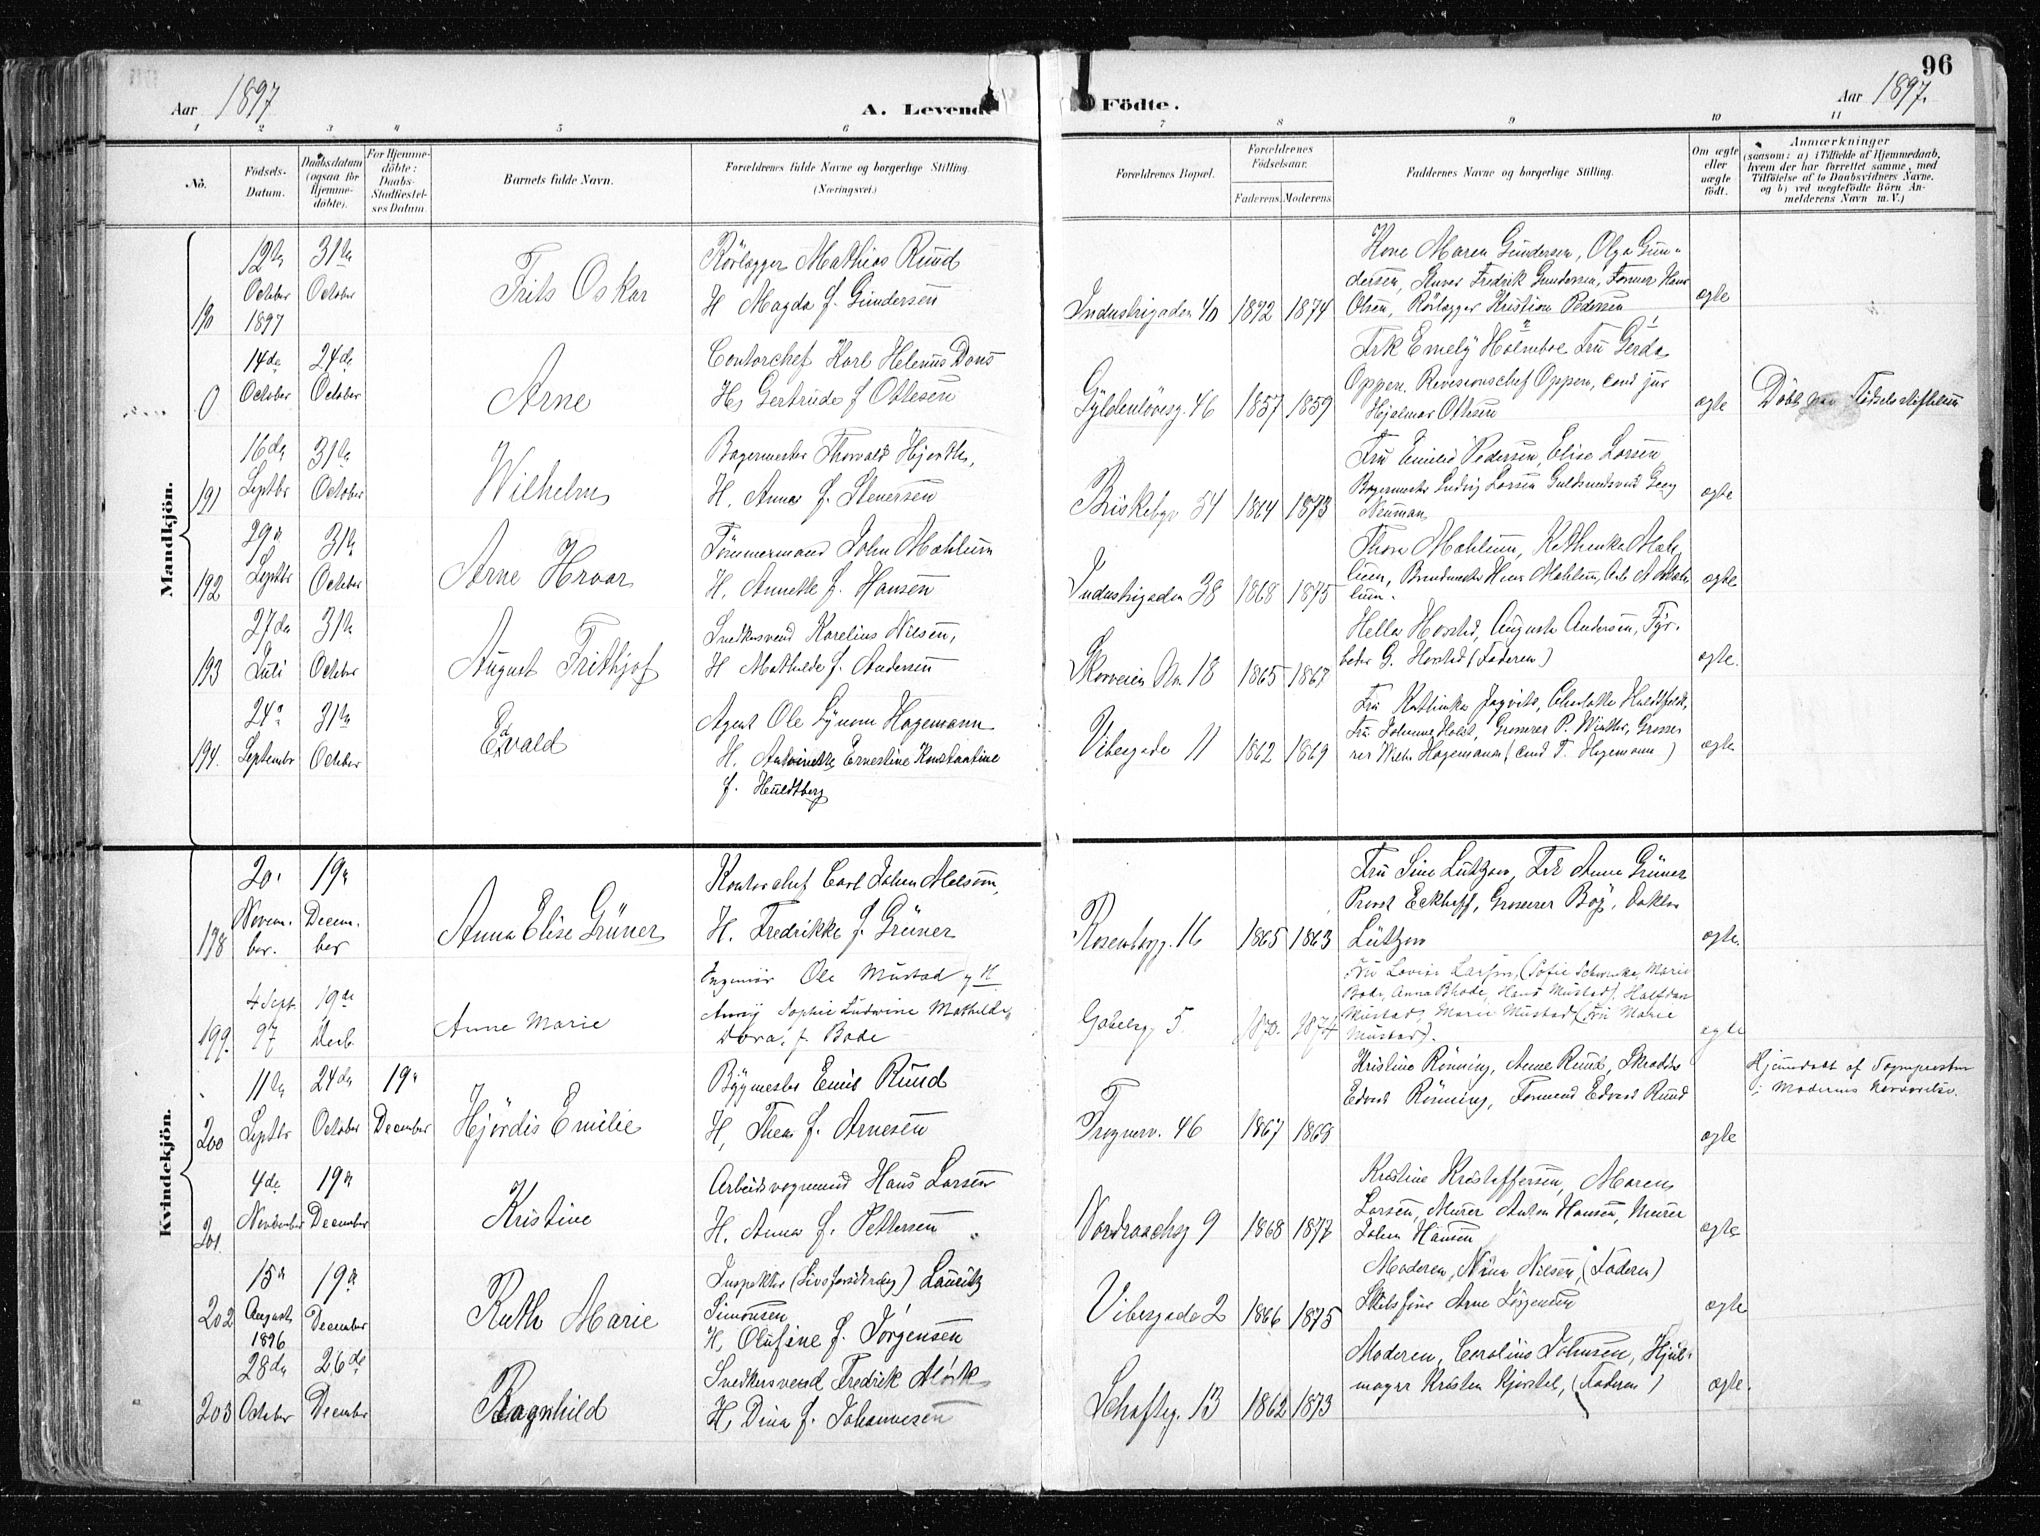 96
Aar 1897
A. Levende
Födte.
Aar 1897.
1 2 3 4 5 6 7 8 9 10 11
No.
Födsels-
Datum.
Daabsdatum
(ogsaa for
Hjemme-
döbte).
For Hjemme-
döbte:
Daabs-
Stadfæstel-
ses Datum
Barnets fulde Navn.
Forældrenes fulde Navne og borgerlige Stilling.
(Næringsvei.)
Forældrenes Bopæl.
Forældrenes
Födselsaar.
Faderens. Moderens.
Faddernes Navne og borgerlige Stilling.
Om ægte
eller
uægte
födt.
Anmærkninger
(saasom: a) i Tilfælde af Hjemmedaab,
hvem der har forrettet samme, med
Tilföielse af to Daabsvidners Navne,
og b) ved uægtefödte Börn An-
melderens Navn m. V.)
Mandkjön.
190
12te October 1897
31te October
Frits Oskar
Rörlægger Mathias Ruud
H Magda f. Gundersen
Industrigaden 40
1872 1874
Kone Maren Gundersen, Olga Gun-
dersen, Fredrik Gundersen, Former Hans
Olsen, Rörlægger Kristian Pedersen
ægte
0
14de October
24de October
Arne
Contorchef Karl Helenus Dons
H Gertrude f Ottesen
Gyldenlövesg. 46
1857 1859
Frk Emely Holmboe Fru Gerda
Oppen. Revisionschef Oppen, cand jur
Hjalmar Ottesen
ægte
191
16de Septbr
31te October
Wilhelm
Bagermester Thorvald Hjorth,
H. Anna f. Stenersen
Briskebyv 54
1864 1873
Fru Emilie Pedersen, Elise Larsen
Bagermester Ludvig Larsen Guldsmedsvend Georg
Neuman
ægte
192
29de Septbr
31te October
Arne Hroar
Tömmermand John Mæhlum
H. Annette f. Hansen
Industrigaden 38
1868 1875
Thora Mæhlum, Kathinka Mæh-
lum, Brandmester Hans Mæhlum, Arb. A Mæh-
lum.
ægte
193
27de Juli
31te October
August Frithjof
Snedkersvend Karelius Nilsen,
H Mathilde f. Andersen
Skovveien No. 18
1865 1867
Hella Horstad, Augusta Andersen, Fyr-
böter G. Horstad (Faderen)
ægte.
194.
24de September
31te October
Edvald
Agent Ole Lynum Hagemann
H. Antoinette Ernestine Konstantine
f. Huldtberg
Vibesgade 11
1862 1869
Fru Kathinka Charlotte
Fru Johanne Holst, Grosserer P. Winther, Grosse-
rer Wilh. Hagemann (Cand T. Hagemann)
ægte
Kvindekjön.
198
20. Novem-
ber.
19de Decem-
ber
Anna Elise Grüner
Kontorchef Carl Johan Melsom,
H. Fredrikke f. Grüner
Rosenborgg. 16
1865 1863
Fru Sine Lützow, Frk Anna Grüner
Provst Eckhoff, Grosserer Bög, Doktor
Lützow
ægte.
199.
4 Sept. 97
19de Decb.
Anne Marie
Ingeniör Ole Mustad og H
Anny Sophie Ludwine Mathilde
Dora, f. Bode
Gabelsg. 5.
1870. 1874
Fru Lovise Larsen, (Sofie Marie
Bode, Anna Rhode, Hans Mustad), Halfdan
Mustad, Marie Mustad (Fru Marie
Mustad).
egte
200
11te Septbr
24de October
19de December
Hjördis Emilie
Bygmester Emil Ruud
H, Thea f. Arnesen
Frognerv. 46
1867 1869
Kristine Rönning, Anne Ruud, Skrædder
Edvard Rönning, Formand Edvard Ruud
ægte
Hjemmedöbt af Sognepresten
i Moderens Nærværelse.
201
4de November
19de December
Kristine
Arbeidsvogmand Hans Larsen
H. Anna f. Pettersen
Nordraachsg 9
1868 1877
Kristine Kristoffersen, Maren
Larsen, Murer Anton Hansen, Murer
Johan Hansen
ægte
202
15de August 1896
19de December
Ruth Marie
Inspektör (Livsforsikring) Lauritz
Simonsen
H, Olufine f. Jörgensen
Vibesgade 2
1866 1875
Moderen, Nina Nilsen, (Faderen)
Arne Jörgensen
ægte
203
28de October
26de December
Ragnhild
Snedkersvend Fredrik Mörk
H, Dina f. Johannesen
Schafteg. 13
1862 1873
Moderen, Carolius Johnsen, Hjul-
mager Kristen Kjorstel, (Faderen)
ægte.